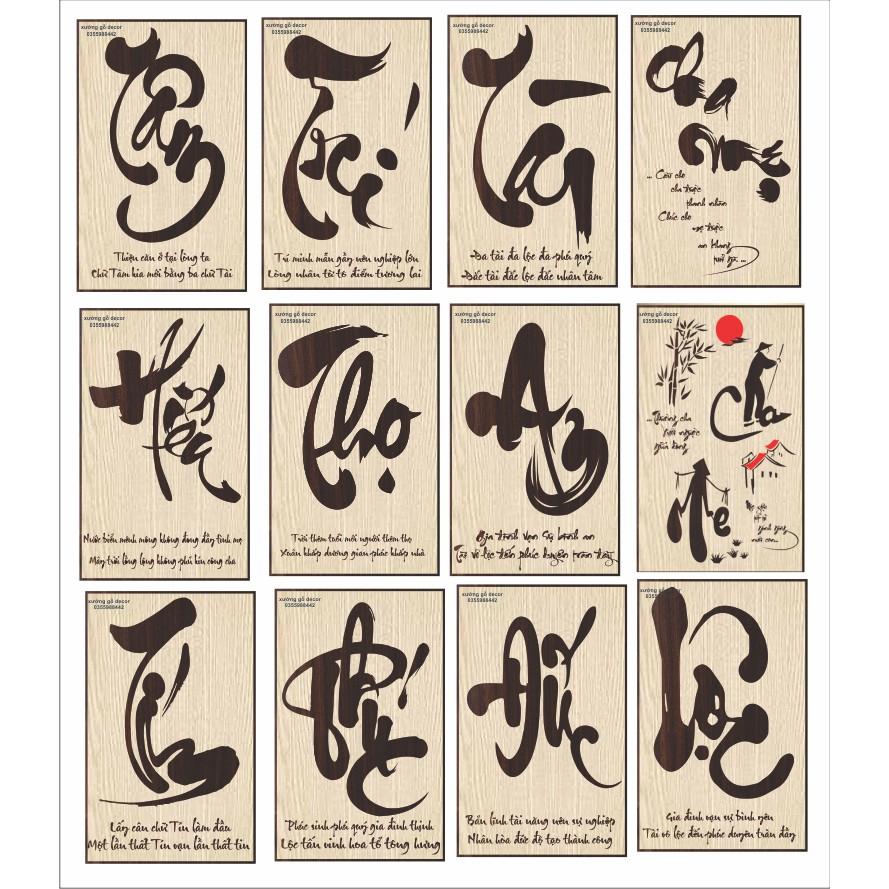 xưởng gỗ decor
0355988442
Tâm
Thiện căn ở tại lòng ta
Chữ Tâm kia mới bằng ba chữ Tài
xưởng gỗ decor
0355988442
Trí
Trí minh mẫn gây nên nghiệp lớn
Lòng nhân từ tô điểm tương lai
xưởng gỗ decor
0355988442
Tài
Đa tài đa lộc đa phú quý
Đắc tài đắc lộc đắc nhân tâm
xưởng gỗ decor
0355988442
Cha
Mẹ
... Cầu cho
cha được
thanh nhàn
Chúc cho
mẹ được
an khang
xưởng gỗ decor
0355988442
Hiếu
Nước biển mênh mông không đong đầy tình mẹ
Mây trời lồng lộng không phủ kín công cha
xưởng gỗ decor
0355988442
Thọ
Trời thêm tuổi mới người thêm thọ
Xuân khắp dương gian phúc khắp nhà
xưởng gỗ decor
0355988442
An
Gia đình vạn sự bình an
Tài vô lộc tiến phúc duyên tràn đầy
xưởng gỗ decor
0355988442
Cha
Mẹ
xưởng gỗ decor
0355988442
Tín
Lấy câu chữ Tín làm đầu
Một lần thất Tín vạn lần thất tin
xưởng gỗ decor
0355988442
Phúc
Phúc sinh phú quý gia đình thịnh
Lộc tấn vinh hoa tổ tông hưng
xưởng gỗ decor
0355988442
Đức
Bản lĩnh tài năng nên sự nghiệp
Nhân hòa đức độ tạo thành công
xưởng gỗ decor
0355988442
Lộc
Gia đình vạn sự bình yên
Tài vô lộc đến phúc duyên tràn đầy